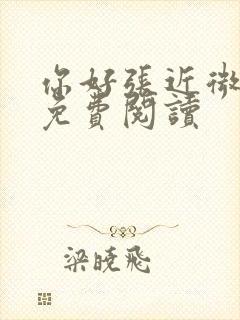 你好張近微
免費閱讀
梁曉飛